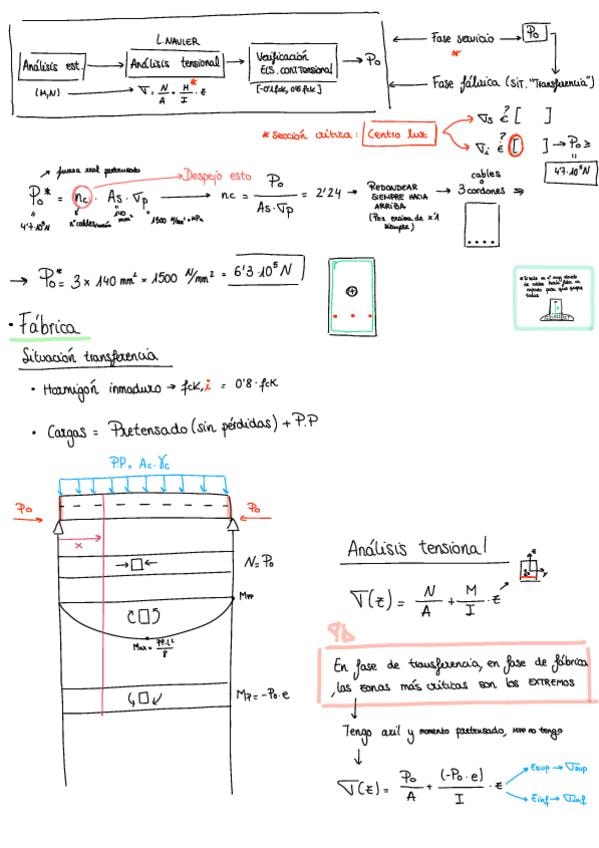 L. NAVIER
Análisis est. → Análisis tensional → Verificación ELS. cont. Tensional → P0
(M,N) → σ = N/A + M/I · z
[-0'1 fck, 0'6 fck]
← Fase servicio P0
*
← Fase fábrica (SIT. "Transferencia")
* Sección crítica: Centro luz
σs ∈? [ ]
σi ∈? [ ] → P0 ≥
4'7·10⁵N
fuerza real pretensado
Despejo esto
P0* = nc · As · σp → nc = P0 / As·σp = 2'24 → REDONDEAR SIEMPRE HACIA ARRIBA → 3 cordones ⇒
cables
4'7·10⁵N
nº cables
140 mm²
1500 N/mm² = MPa
→ P0* = 3 × 140 mm² × 1500 N/mm² = 6'3·10⁵ N
· Fábrica
Situación transferencia
• Hormigón inmaduro → fck,i = 0'8·fck
• Cargas = Pretensado (sin pérdidas) + P.P
P.P. = Ac · γc
P0
P0
x
N = P0
Mpp
Max = PP·L²/8
Mp = -P0·e
Análisis tensional
σ(z) = N/A + M/I · z
En fase de transferencia, en fase de fábrica
, las zonas más críticas son los EXTREMOS
Tengo axil y momento pretensado, MPP no tengo
σ(z) = P0/A + (-P0·e)/I · z
Zsup → σsup
Zinf → σinf